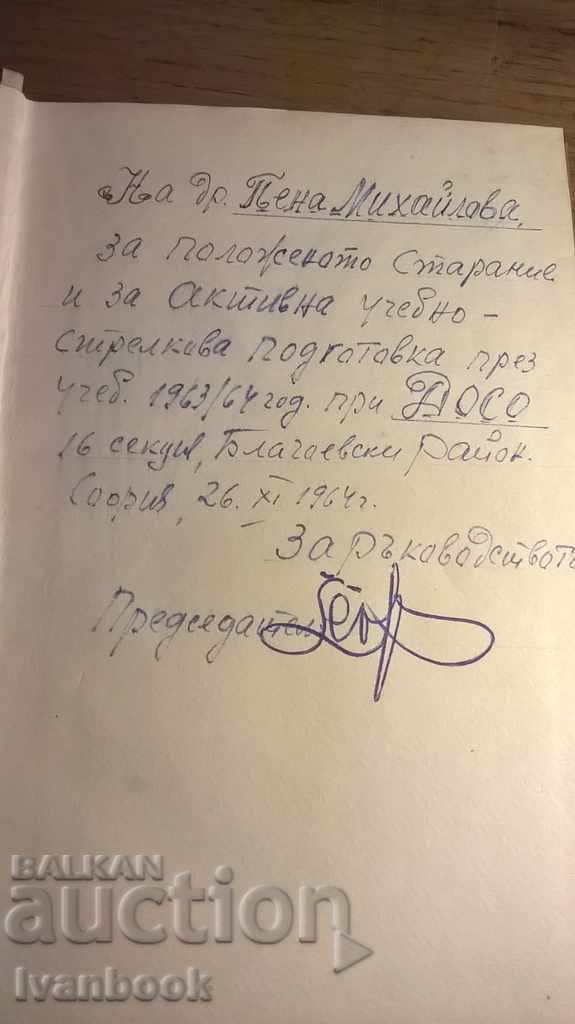 На др. Пена Михайлова,
за положеното старание
и за активна учебно -
стрелкова подготовка през
учеб. 1963/64 год. при ДОСО
16 секция, Благоевски район.
София, 26. XI 1964 г.
За ръководството
Председател
BALKAN
auction
Ivanbook